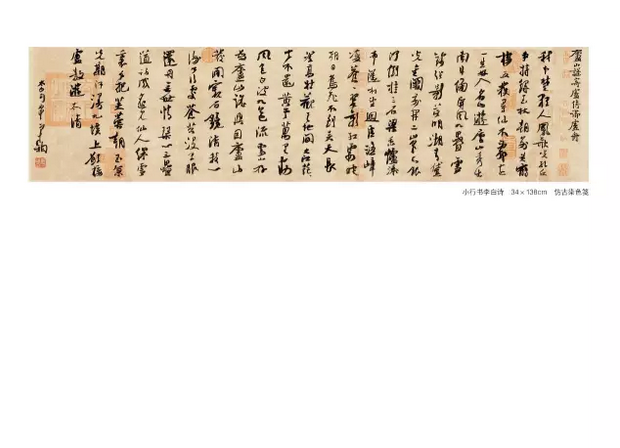 廬山謠寄盧侍御虛舟
我本楚狂人鳳歌笑孔丘
手持綠玉杖朝別黃鶴
樓五嶽尋仙不辭遠
一生好入名山遊廬山秀出
南斗傍屏風九疊雲
錦張影落明湖青黛
光金闕前開二峰長銀
河倒掛三石梁香爐瀑
布遙相望迴崖沓嶂
凌蒼蒼翠影紅霞映
朝日鳥飛不到吳天長
登高壯觀天地間大江茫茫
去不還黃雲萬里動
風色白波九道流雪山好
為廬山謠興因廬山
發閑窺石鏡清我心
謝公行處蒼苔沒早服
還丹無世情琴心三疊
道初成遙見仙人彩雲
裏手把芙蓉朝玉京
先期汗漫九垓上願接
盧敖遊太清
小行书李白诗 34×138cm 仿古染色笺